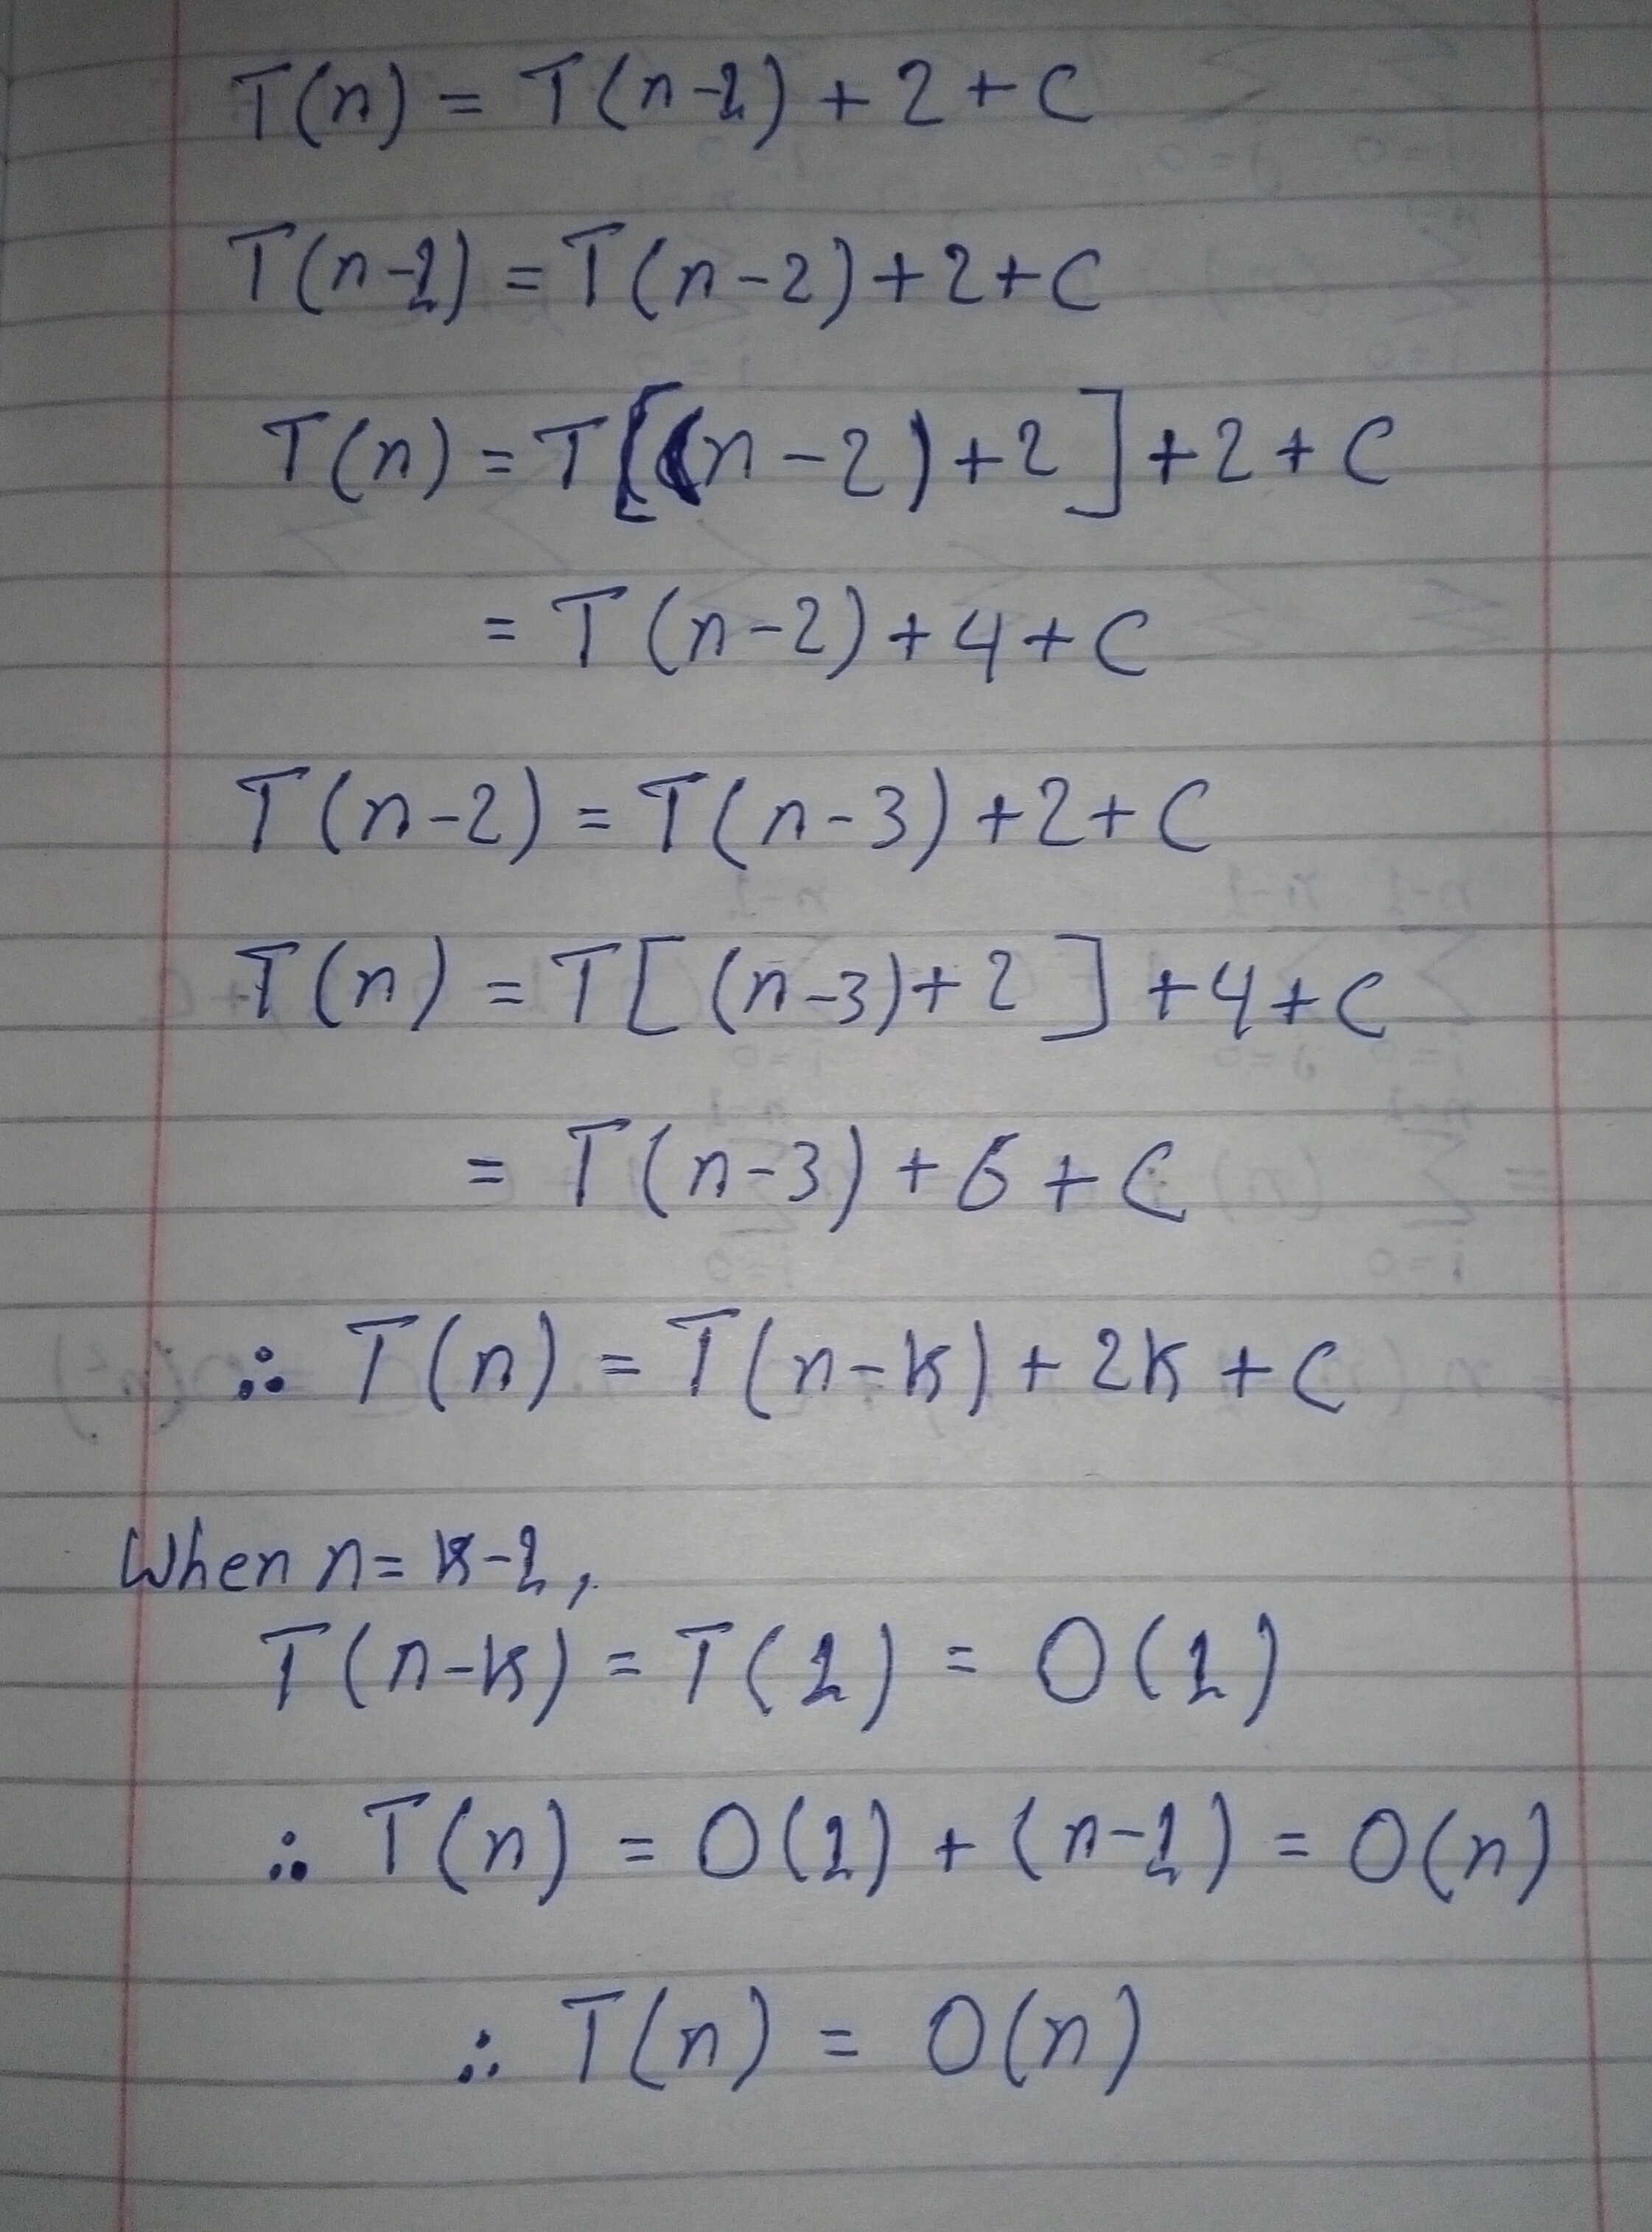 T(n) = T(n-1) + 2 + C
T(n-1) = T(n-2) + 2 + C
T(n) = T[(n-2) + 2] + 2 + C
= T(n-2) + 4 + C
T(n-2) = T(n-3) + 2 + C
T(n) = T[(n-3) + 2] + 4 + C
= T(n-3) + 6 + C
∴ T(n) = T(n-k) + 2k + C
When n = k-1,
T(n-k) = T(1) = O(1)
∴ T(n) = O(1) + (n-1) = O(n)
∴ T(n) = O(n)